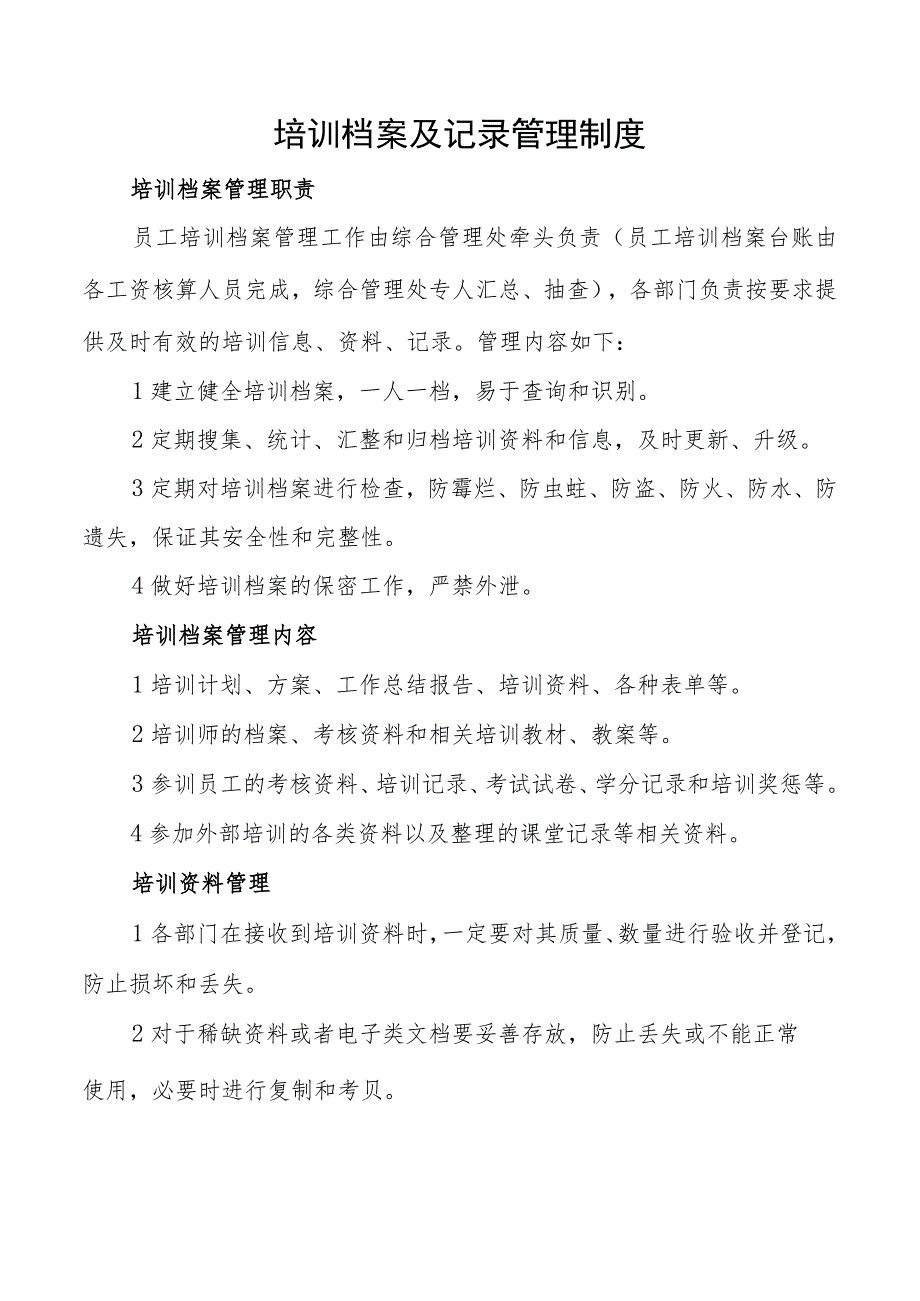 培训档案及记录管理制度
培训档案管理职责
员工培训档案管理工作由综合管理处牵头负责（员工培训档案台账由
各工资核算人员完成，综合管理处专人汇总、抽查），各部门负责按要求提
供及时有效的培训信息、资料、记录。管理内容如下：
1 建立健全培训档案，一人一档，易于查询和识别。
2 定期搜集、统计、汇整和归档培训资料和信息，及时更新、升级。
3 定期对培训档案进行检查，防霉烂、防虫蛀、防盗、防火、防水、防
遗失，保证其安全性和完整性。
4 做好培训档案的保密工作，严禁外泄。
培训档案管理内容
1 培训计划、方案、工作总结报告、培训资料、各种表单等。
2 培训师的档案、考核资料和相关培训教材、教案等。
3 参训员工的考核资料、培训记录、考试试卷、学分记录和培训奖惩等。
4 参加外部培训的各类资料以及整理的课堂记录等相关资料。
培训资料管理
1 各部门在接收到培训资料时，一定要对其质量、数量进行验收并登记，
防止损坏和丢失。
2 对于稀缺资料或者电子类文档要妥善存放，防止丢失或不能正常
使用，必要时进行复制和考贝。